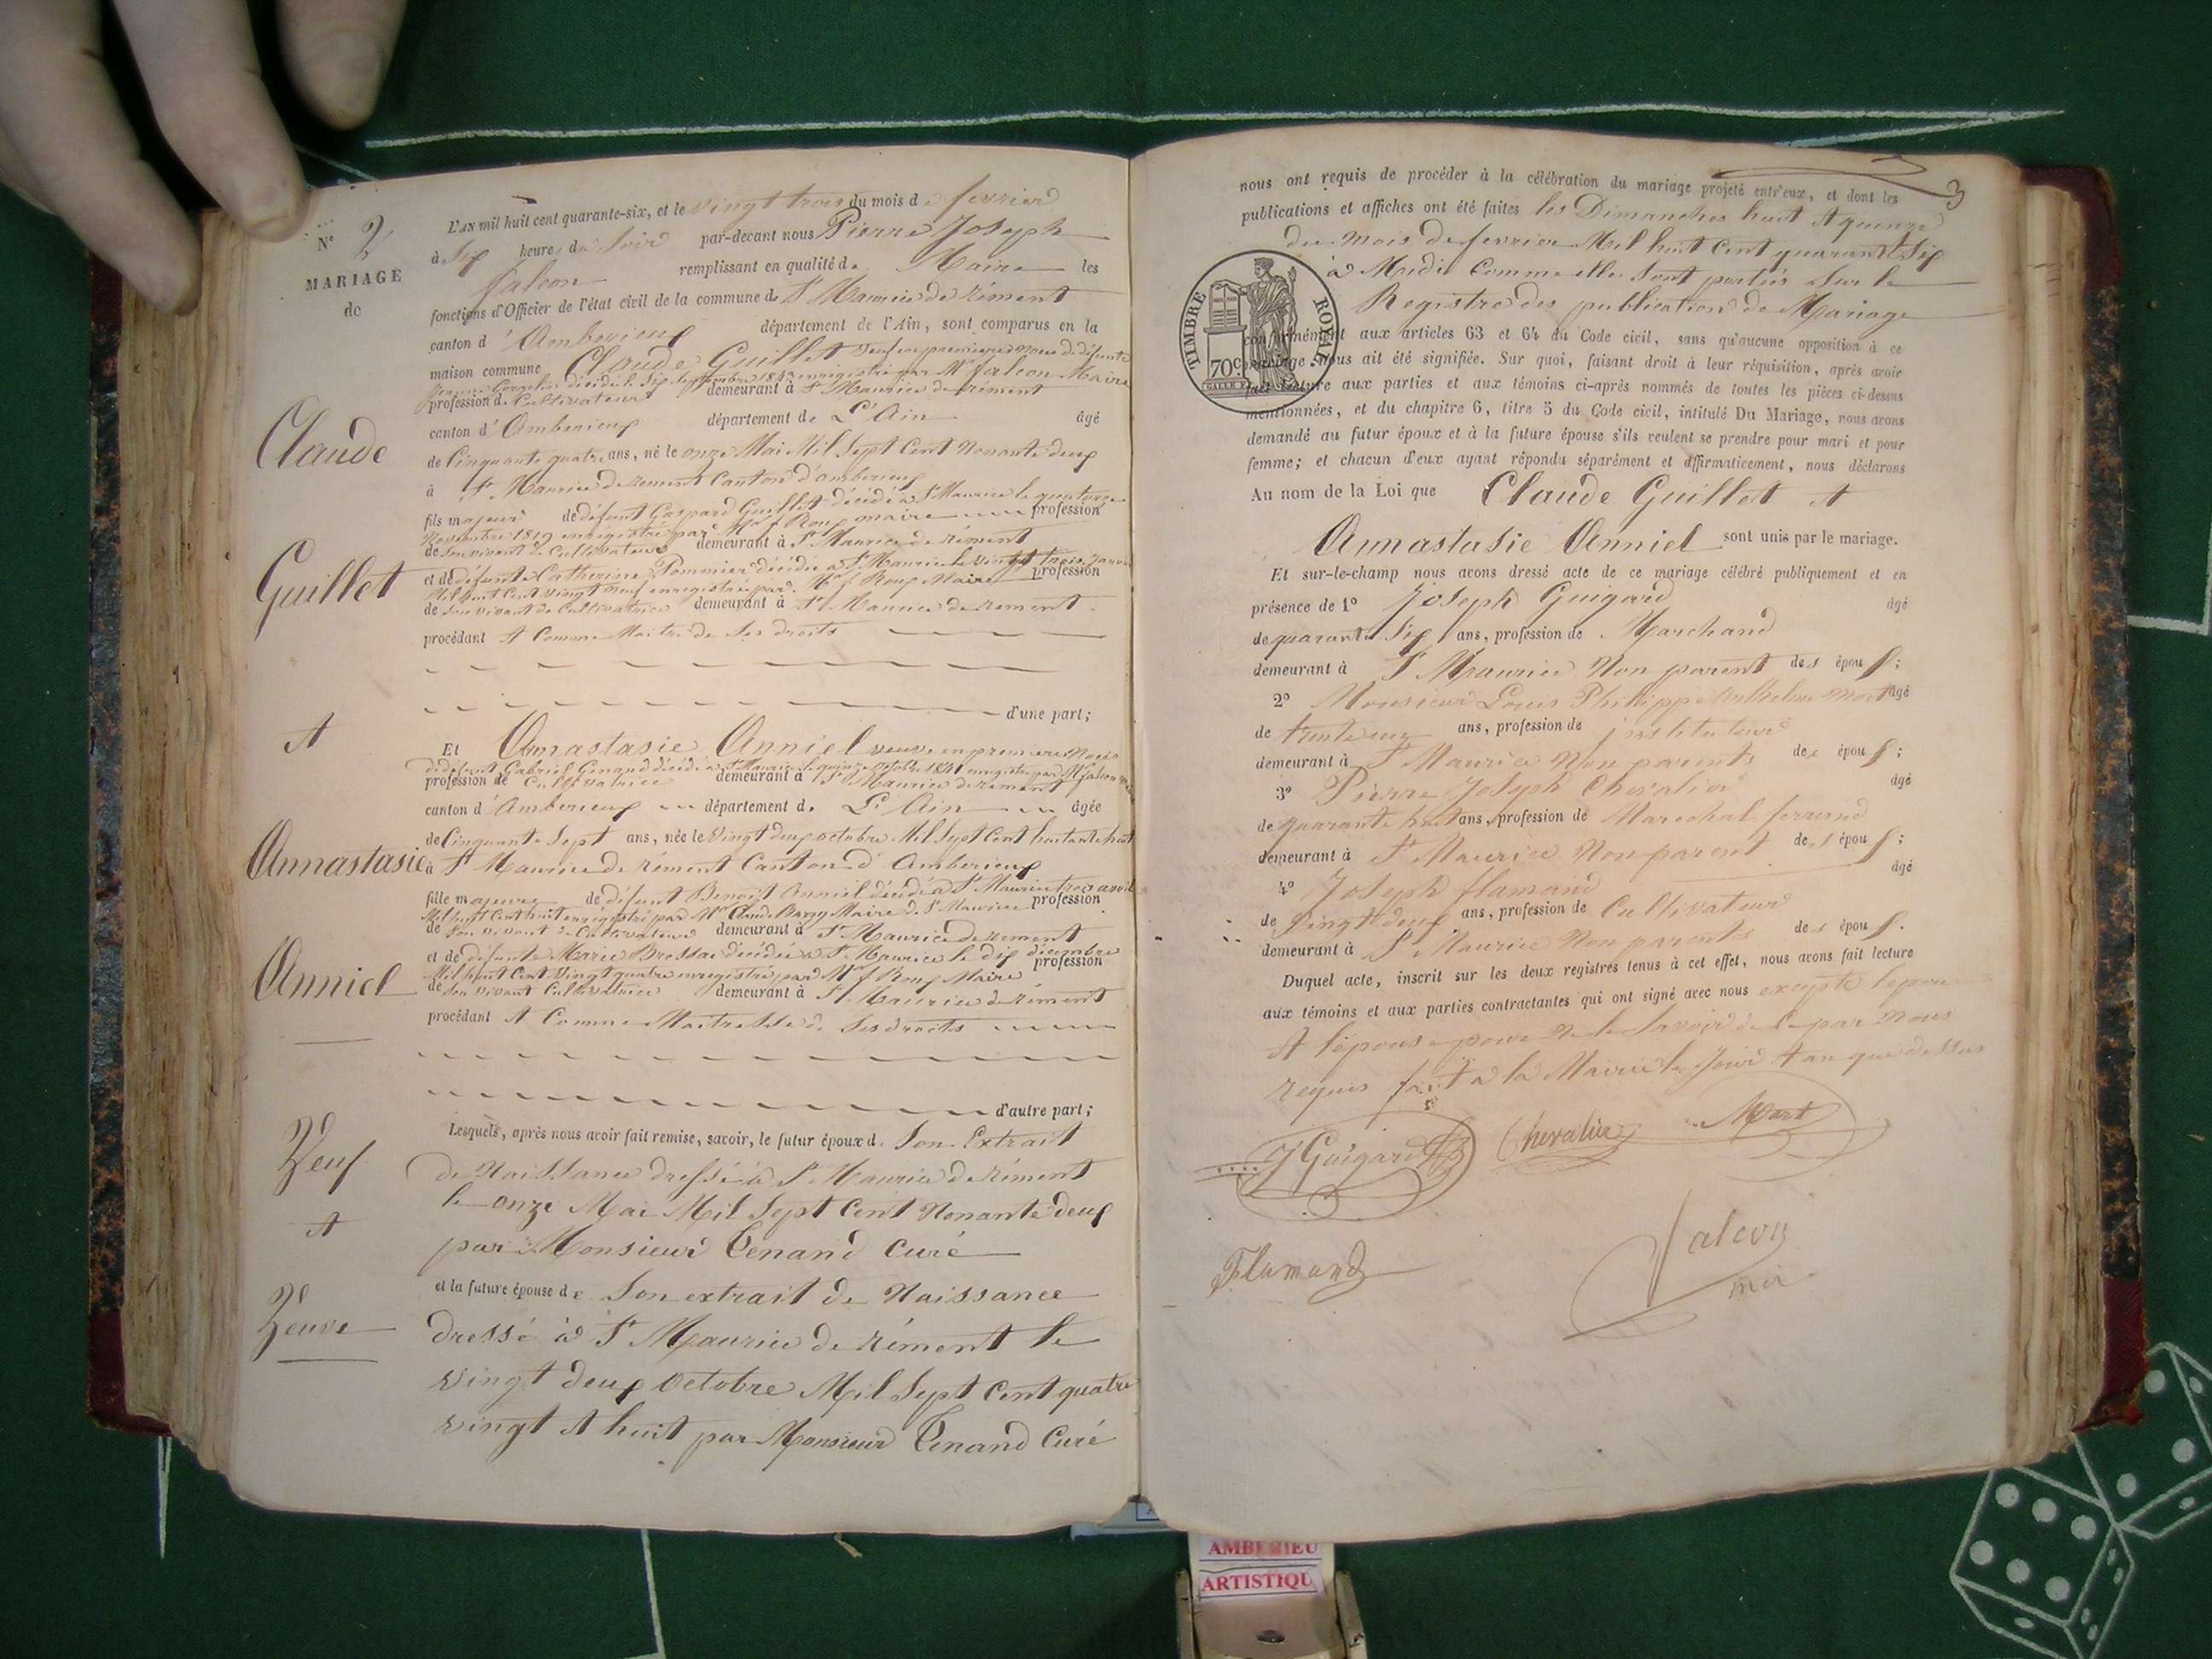 N° 2
MARIAGE
de
Claude
Guillet
et
Annastasie
Anniel
Veuf
et
Veuve
L'AN mil huit cent quarante-six, et le vingt trois du mois de fevrier
à Six heures du Soir par-devant nous Pierre Joseph
falcon remplissant en qualité de Maire les
fonctions d'Officier de l'état civil de la commune de St Maurice de rément
canton d'Amberieux département de l'Ain, sont comparus en la
maison commune Claude Guillet veuf en premieres noces de défunte
décédée le Six Septembre 1843 enregistré par Mr falcon Maire
profession de Cultivateur demeurant à St Maurice de rément
canton d'Amberieux département de L'Ain âgé
de Cinquante quatre ans, né le onze Mai Mil Sept Cent Nonante deux
à St Maurice de rement Canton d'amberieux
fils majeur de défunt Gaspard Guillet décédé à St Maurice le quatorze
Novembre 1819 enregistré par Mr f Roux maire profession
de son vivant de Cultivateur demeurant à St Maurice de rément
et de défunte Catherine Pommier décédée à St Maurice le vingt trois Janvier
Mil huit Cent vingt neuf enregistré par Mr f Roux Maire profession
de son vivant de Cultivatrice demeurant à St Maurice de rement
procédant et Comme Maitre de Ses droits
d'une part;
Et Annastasie Anniel veuve en premieres Noces
de défunt Gabriel Genaud décédé à St Maurice le quinze octobre 1841 enregistré par Mr falcon
profession de Cultivatrice demeurant à St Maurice de rement
canton d'Amberieux département de L'Ain âgée
de Cinquante Sept ans, née le Vingt deux octobre Mil Sept Cent huitante huit
à St Maurice de rément Canton d'Amberieux
fille majeure de défunt Benoit Anniel décédé à St Maurice trois avril
Mil huit Cent huit enregistré par Mr Claude Maire de St Maurice profession
de Son vivant de Cultivateur demeurant à St Maurice de rement
et de défunte Marie Bressa décédée à St Maurice le dix décembre
Mil huit Cent Vingt quatre enregistré par Mr f Roux Maire profession
de Son vivant Cultivatrice demeurant à St Maurice de rément
procédant et Comme Maitresse de Ses droits
d'autre part;
Lesquels, après nous avoir fait remise, savoir, le futur époux de Son Extrait
de Naissance dressé à St Maurice de rément
le onze Mai Mil Sept Cent Nonante deux
par Monsieur Tenand Curé
et la future épouse de Son extrait de Naissance
dressé à St Maurice de rément le
vingt deux octobre Mil Sept Cent quatre
vingt et huit par Monsieur Tenand Curé
3
nous ont requis de procéder à la célébration du mariage projeté entr'eux, et dont les
publications et affiches ont été faites les Dimanches huit et quinze
du mois de fevrier Mil huit Cent quarante Six
à Midi Comme elles Sont portées Sur le
Registre des publication de Mariage
TIMBRE ROYAL
70c
conformément aux articles 63 et 64 du Code civil, sans qu'aucune opposition à ce
mariage nous ait été signifiée. Sur quoi, faisant droit à leur réquisition, après avoir
fait lecture aux parties et aux témoins ci-après nommés de toutes les pièces ci-dessus
mentionnées, et du chapitre 6, titre 5 du Code civil, intitulé Du Mariage, nous avons
demandé au futur époux et à la future épouse s'ils veulent se prendre pour mari et pour
femme; et chacun d'eux ayant répondu séparément et affirmativement, nous déclarons
Au nom de la Loi que Claude Guillet et
Annastasie Anniel sont unis par le mariage.
Et sur-le-champ nous avons dressé acte de ce mariage célébré publiquement et en
présence de 1° Joseph Guigard âgé
de quarante Six ans, profession de Marchand
demeurant à St Maurice Non parent des époux;
2° Monsieur Louis Philippe Anthelme Mort âgé
de trente un ans, profession de instituteur
demeurant à St Maurice Non parents des époux;
3° Pierre Joseph Chevalier âgé
de quarante huit ans, profession de Marechal ferrand
demeurant à St Maurice Non parent des époux;
4° Joseph flamand âgé
de Vingt deux ans, profession de Cultivateur
demeurant à St Maurice Non parents des époux.
Duquel acte, inscrit sur les deux registres tenus à cet effet, nous avons fait lecture
aux témoins et aux parties contractantes qui ont signé avec nous excepté l'epoux
et l'épouse pour ne le Savoir de Ce par Nous
requis fait à la Mairie le Jour et an que dessus
J Guigard Chevalier Mort
Flamand
falcon
mer
AMBERIEU
ARTISTIQU